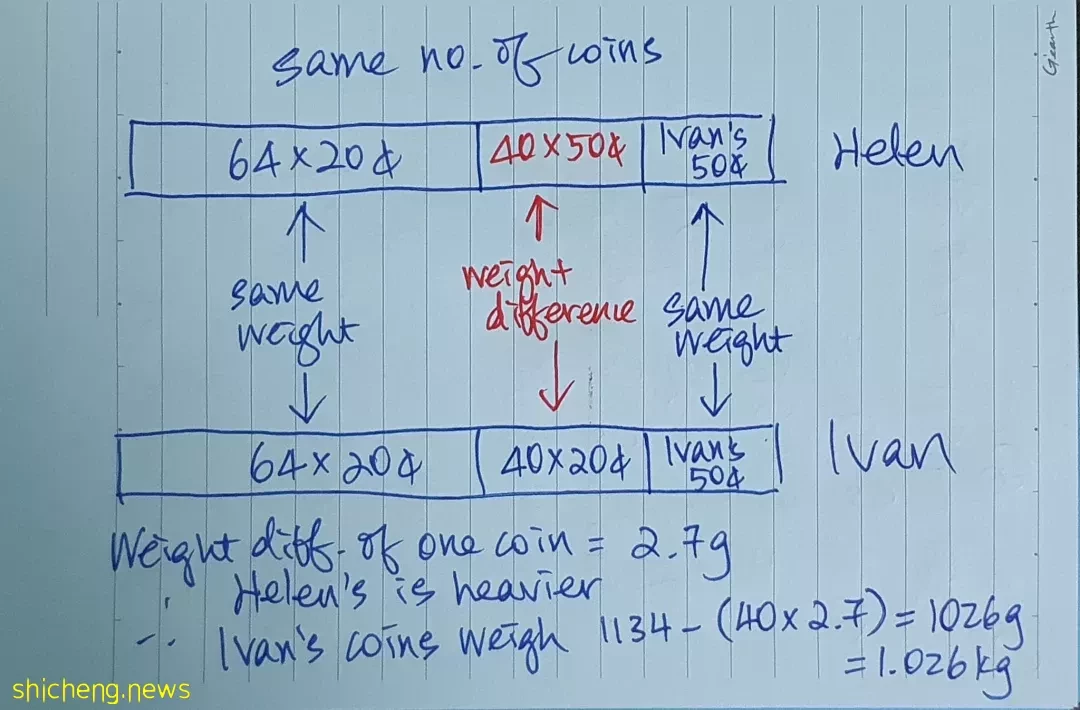 same no. of coins
64 x 20¢ 40 x 50¢ Ivan's 50¢ Helen
same weight
weight difference
same weight
64 x 20¢ 40 x 20¢ Ivan's 50¢ Ivan
Weight diff. of one coin = 2.7g
Helen's is heavier
∴ Ivan's coins weigh 1134 - (40 x 2.7) = 1026g
= 1.026kg
shicheng.news